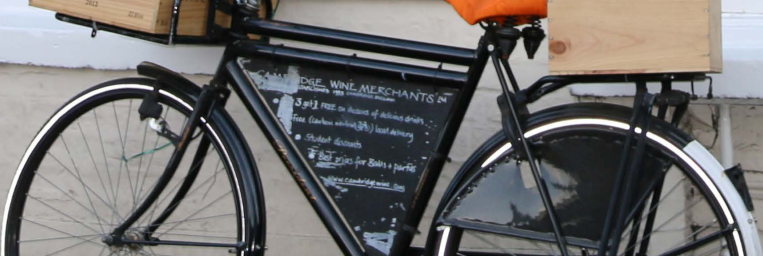 2012
CAMBRIDGE WINE MERCHANTS
3 FREE on dozens of delicious drinks
Free (carbon neutral) local delivery
Student discounts
Best prices for Balls + parties
www.cambridgewine.com